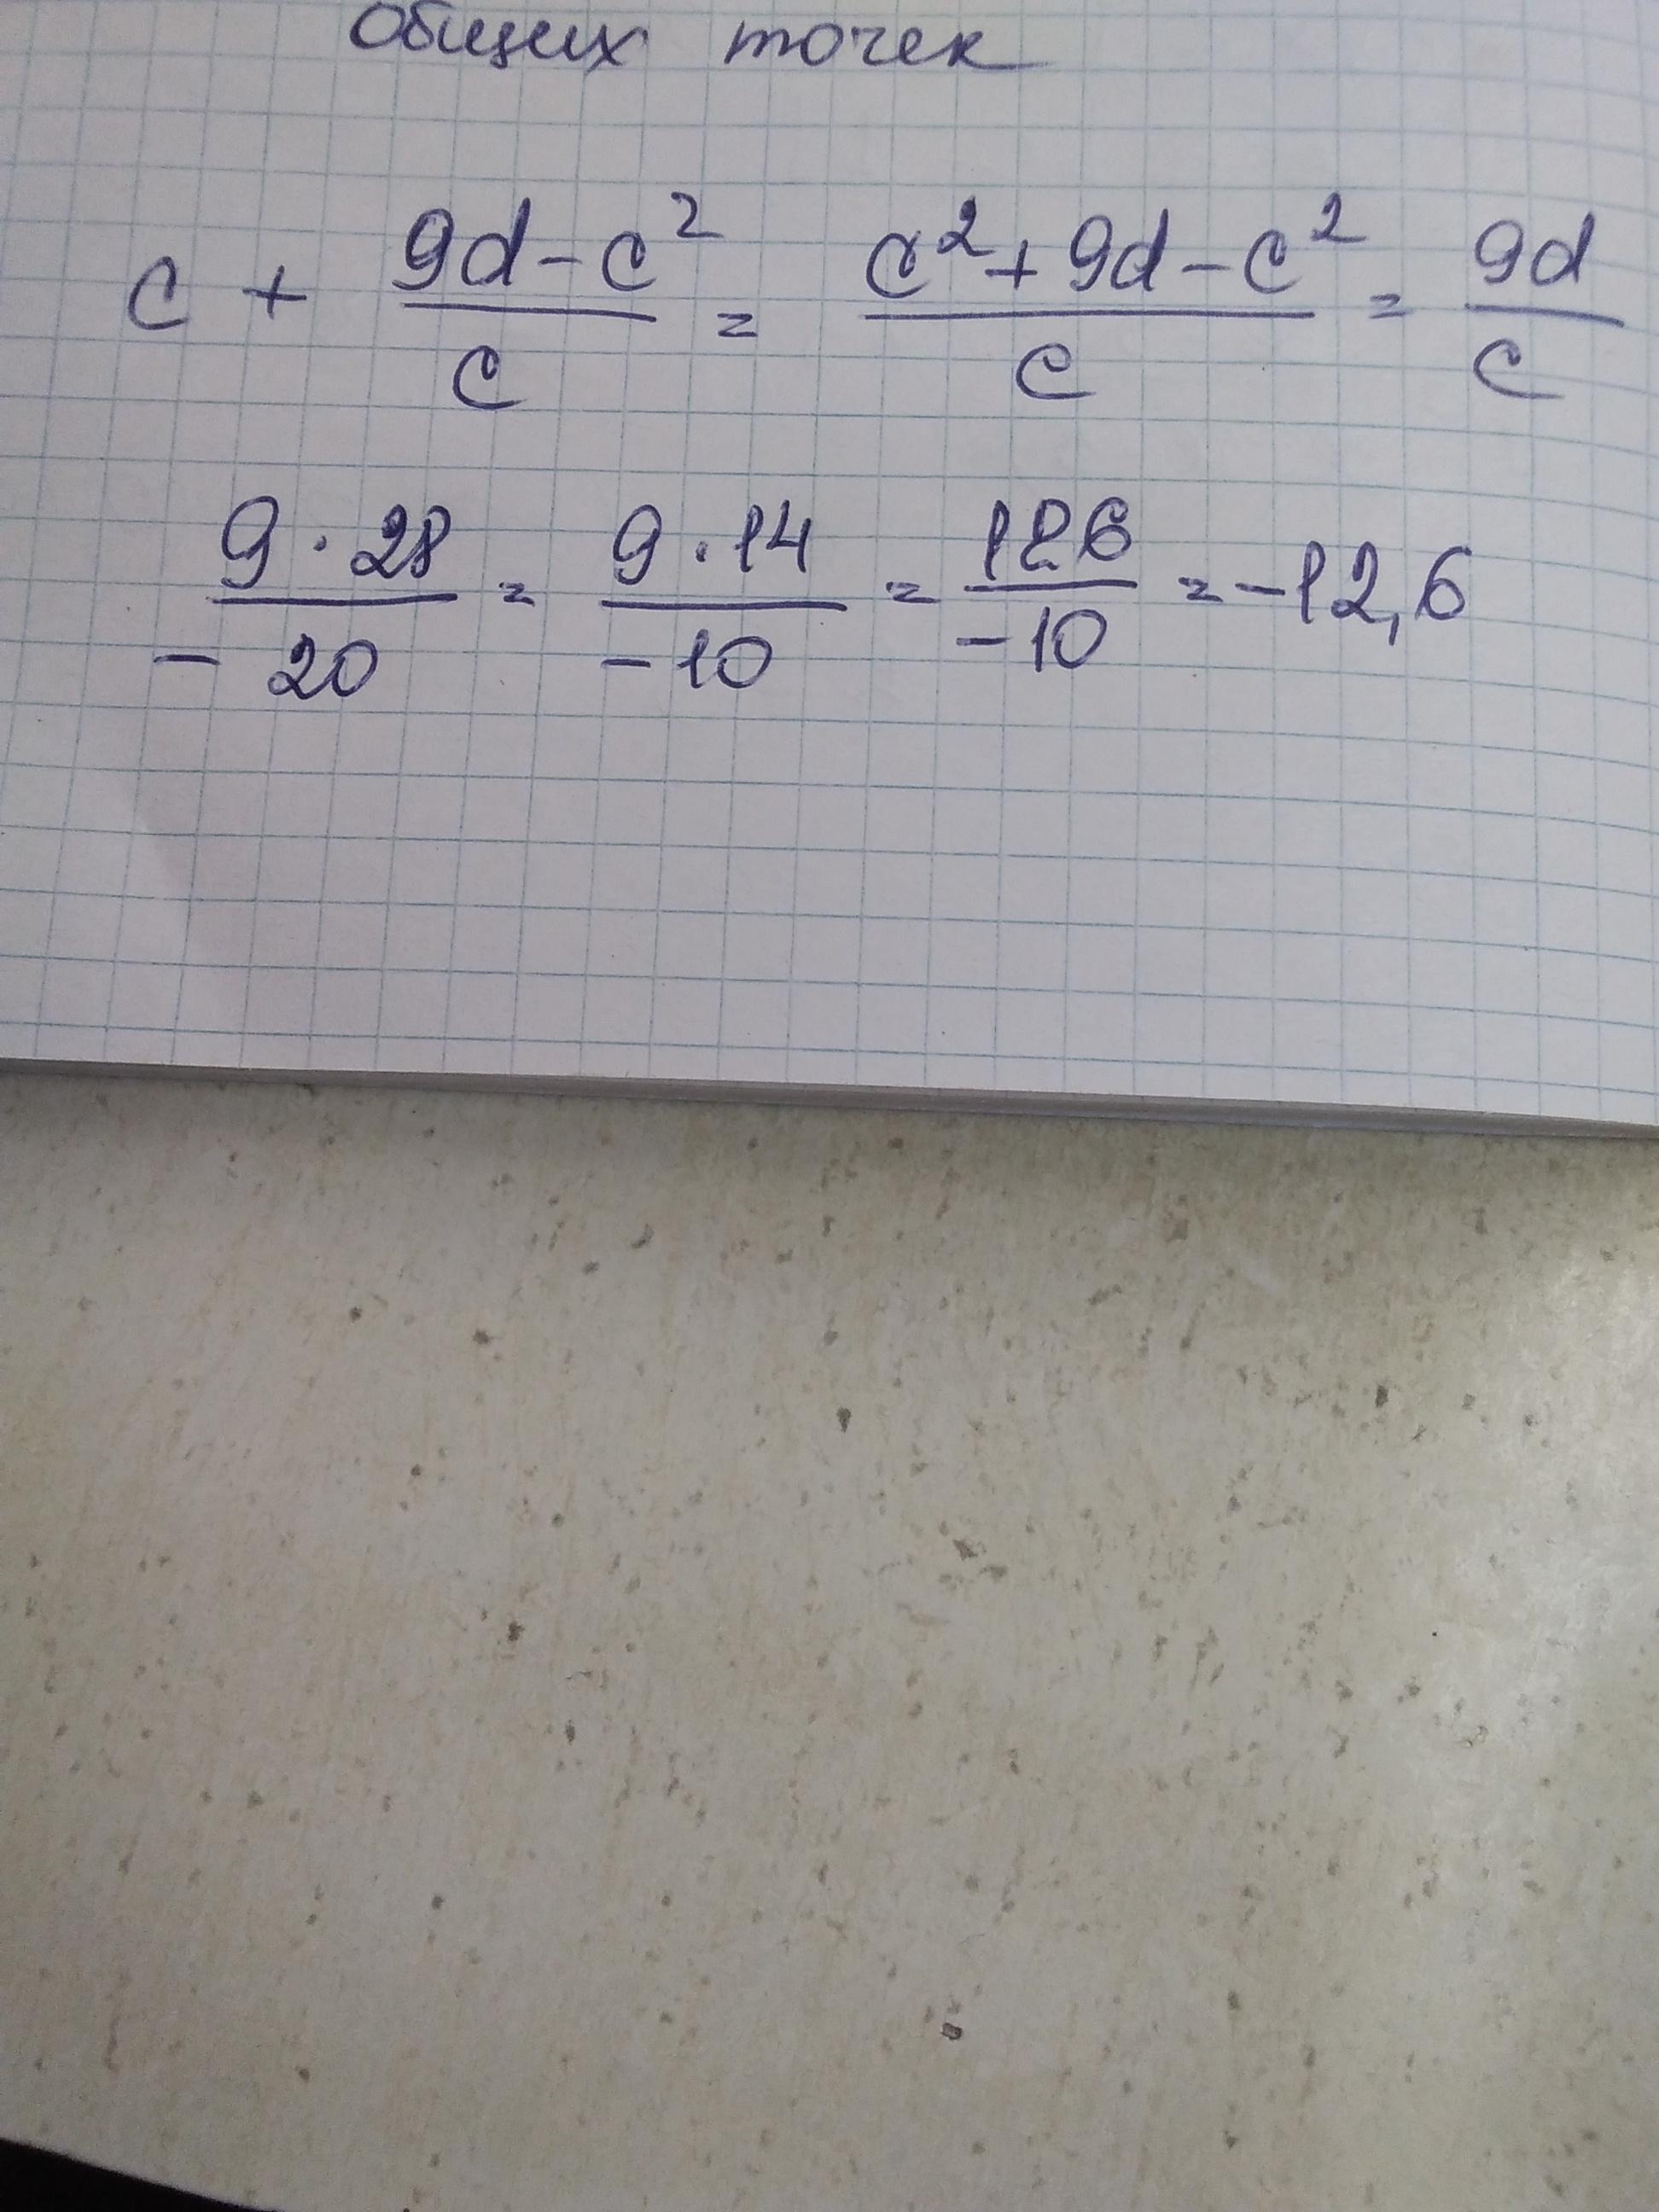 общих точек
c + \frac{9d-c^2}{c} = \frac{c^2+9d-c^2}{c} = \frac{9d}{c}
\frac{9 \cdot 28}{-20} = \frac{9 \cdot 14}{-10} = \frac{126}{-10} = -12,6